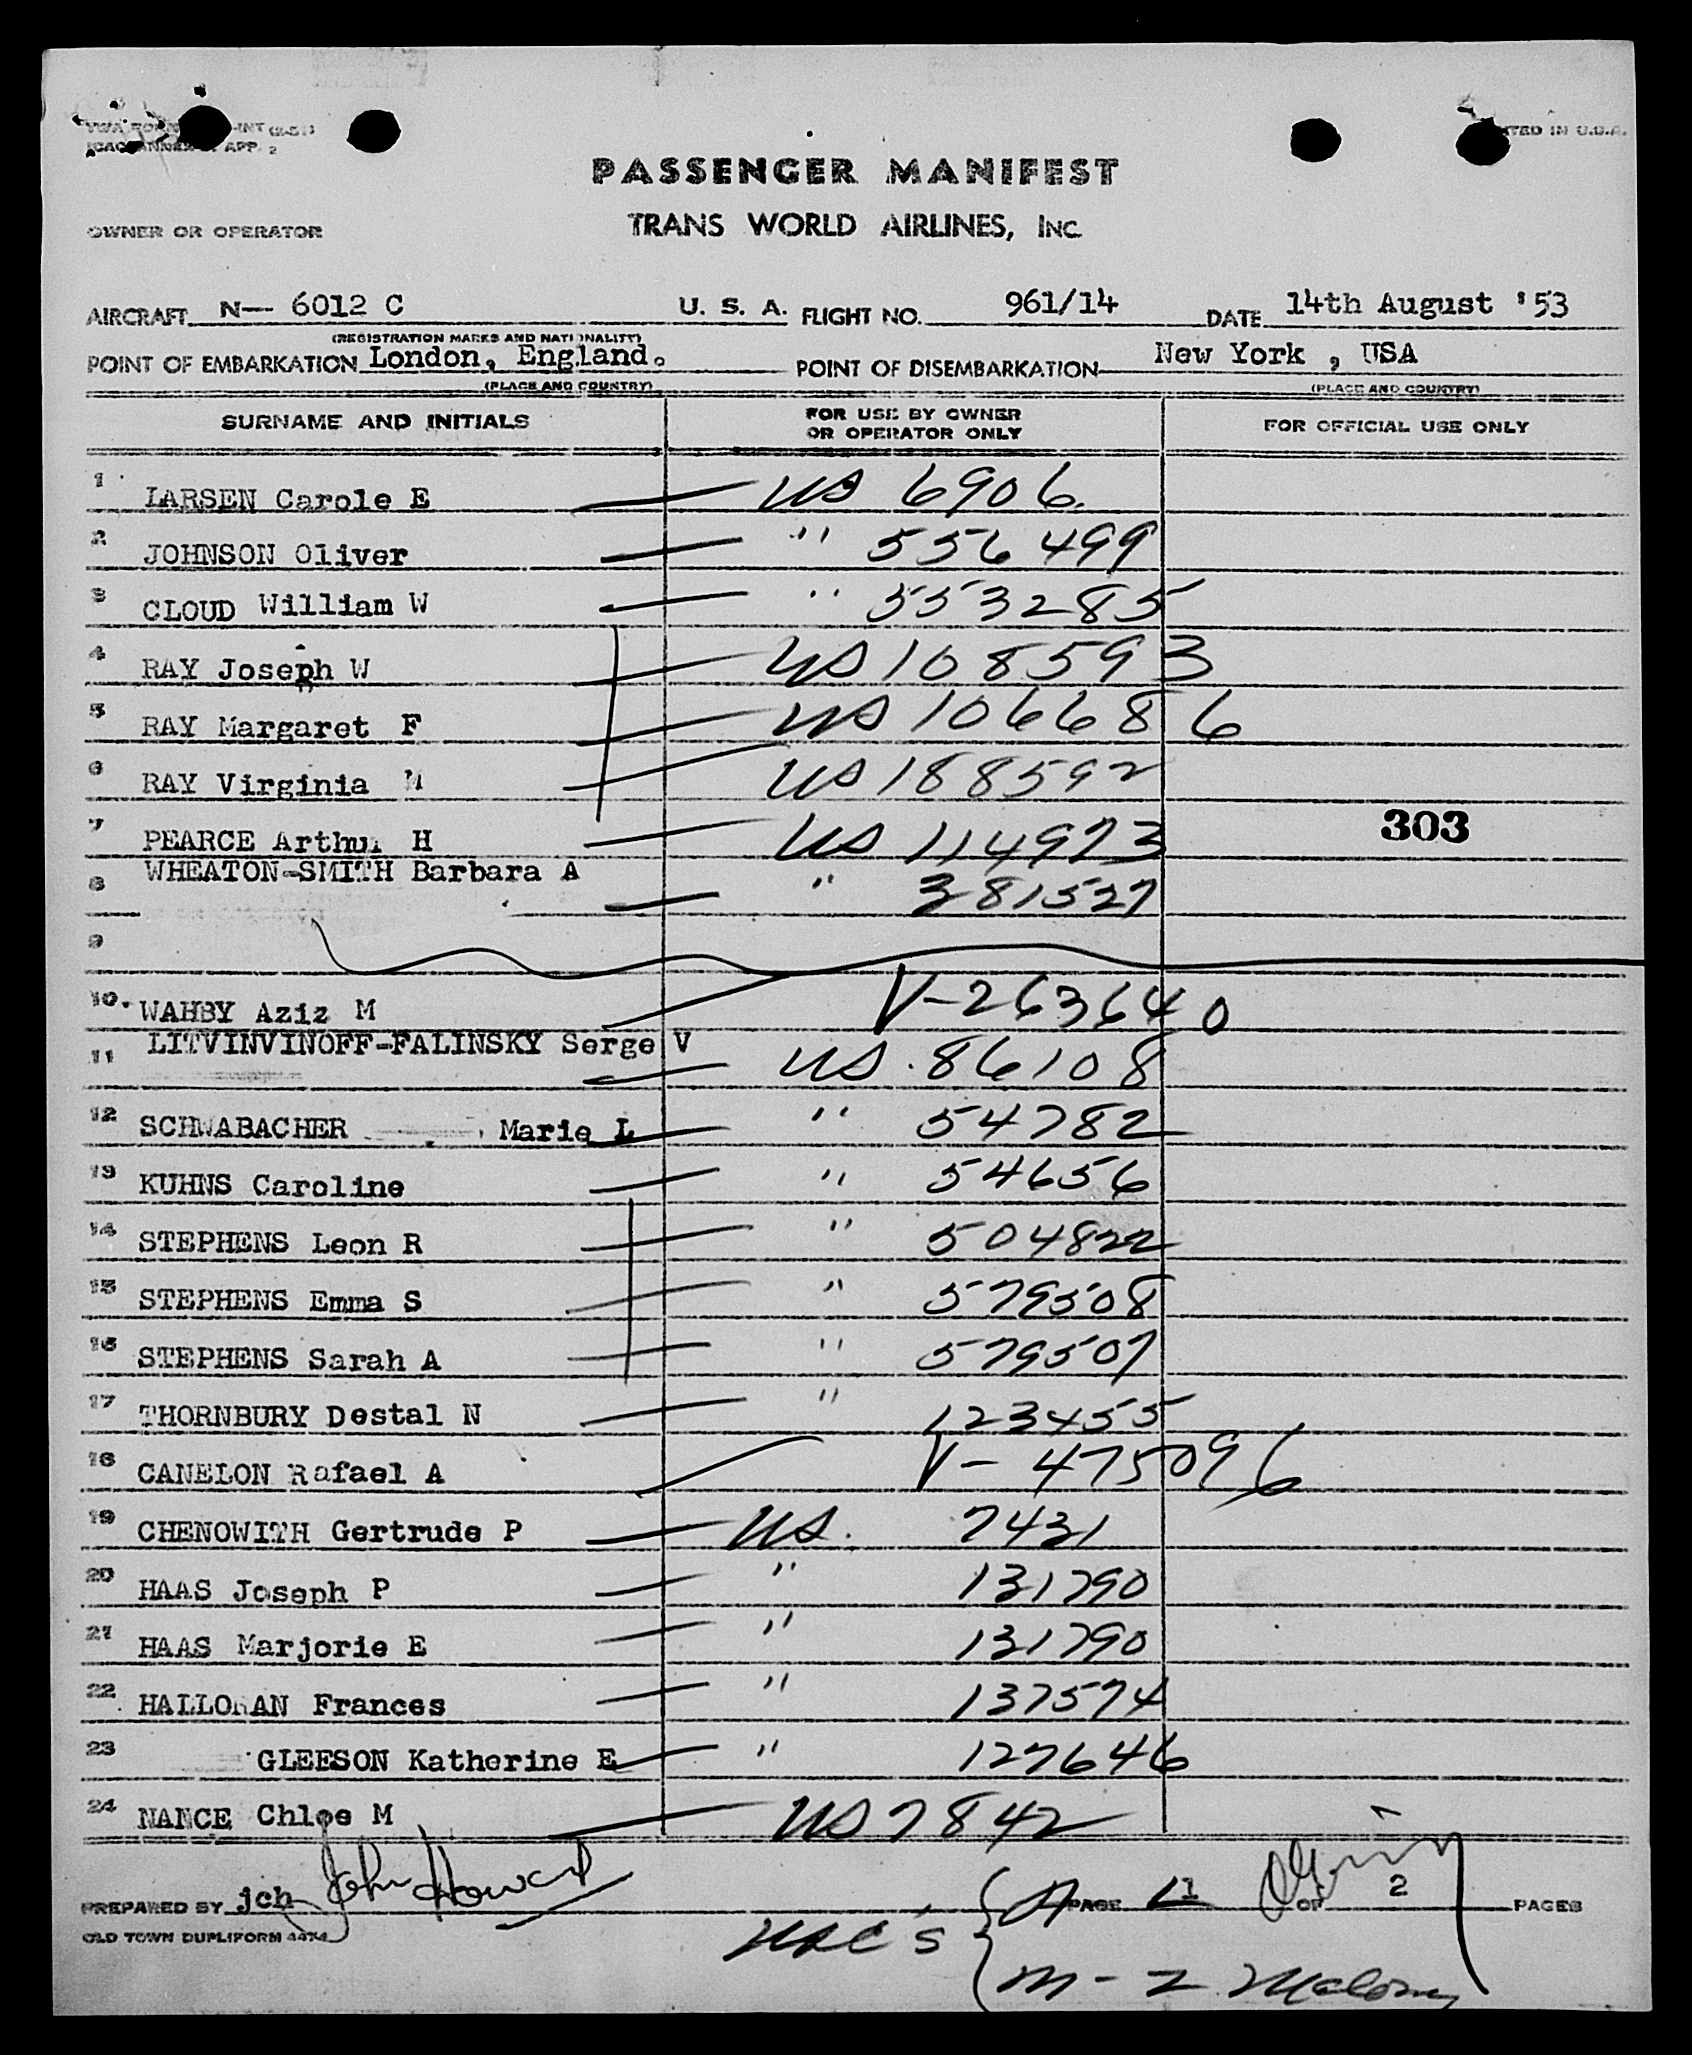 PRINTED IN U.S.A.
ICAO ANNEX 9 APP. 2
PASSENGER MANIFEST
OWNER OR OPERATOR TRANS WORLD AIRLINES, INC.
AIRCRAFT N— 6012 C U. S. A. FLIGHT NO. 961/14 DATE 14th August '53
(REGISTRATION MARKS AND NATIONALITY)
POINT OF EMBARKATION London, England. POINT OF DISEMBARKATION New York , USA
(PLACE AND COUNTRY) (PLACE AND COUNTRY)
SURNAME AND INITIALS FOR USE BY OWNER OR OPERATOR ONLY FOR OFFICIAL USE ONLY
1 LARSEN Carole E US 6906.
2 JOHNSON Oliver " 556499
3 CLOUD William W " 553285
4 RAY Joseph W US 108593
5 RAY Margaret F US 106686
6 RAY Virginia M US 188592
303
7 PEARCE Arthur H US 114973
8 WHEATON-SMITH Barbara A " 381527
9
10. WAHBY Aziz M V-263640
11 LITVINVINOFF-FALINSKY Serge V US. 86108
12 SCHWABACHER Marie L " 54782
13 KUHNS Caroline " 54656
14 STEPHENS Leon R " 504822
15 STEPHENS Emma S " 579508
16 STEPHENS Sarah A " 579507
17 THORNBURY Destal N " 123455
18 CANELON Rafael A V- 475096
19 CHENOWITH Gertrude P US. 7431
20 HAAS Joseph P " 131790
21 HAAS Marjorie E " 131790
22 HALLORAN Frances " 137574
23 GLEESON Katherine E " 127646
24 NANCE Chloe M US 7842
PREPARED BY jch John Howard PAGE 1 OF 2 PAGES
OLD TOWN DUPLIFORM
USC's
M - 2